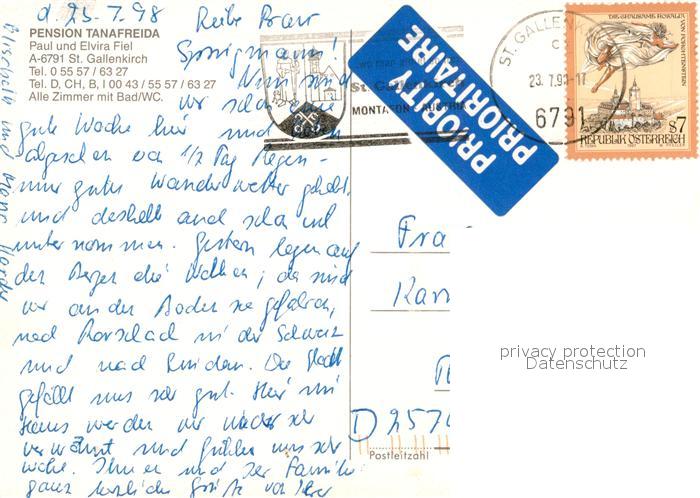 d. 23.7.98
PENSION TANAFREIDA
Paul und Elvira Fiel
A-6791 St. Gallenkirch
Tel. 0 55 57 / 63 27
Tel. D, CH, B, I 00 43 / 55 57 / 63 27
Alle Zimmer mit Bad/WC.
Liebe Frau
Nun sind
wir schon eine
gute Woche hier und haben
abgesehen von 1/2 Tag Regen –
nur gutes Wanderwetter gehabt
und deshalb auch schon viel
unternommen. Gestern lagen auf
den Bergen die Wolken, da sind
wir an den Bodensee gefahren,
nach Rorschach in der Schweiz
und nach Lindau. Die Stadt
gefällt uns sehr gut. Hier im
Haus werden wir wieder sehr
verwöhnt und fühlen uns sehr
wohl. Ihnen und der Familie
ganz herzliche Grüße von Ihrer
Elisabeth und
St. Gallenkirch
MONTAFON AUSTRIA
PRIORITY
PRIORITAIRE
ST. GALLENK
23. 7. 98-17
6791
DIE GRAUSAME ROSALIA
VON FORCHTENSTEIN
S7
REPUBLIK ÖSTERREICH
Fra
D 257
Postleitzahl
privacy protection
Datenschutz